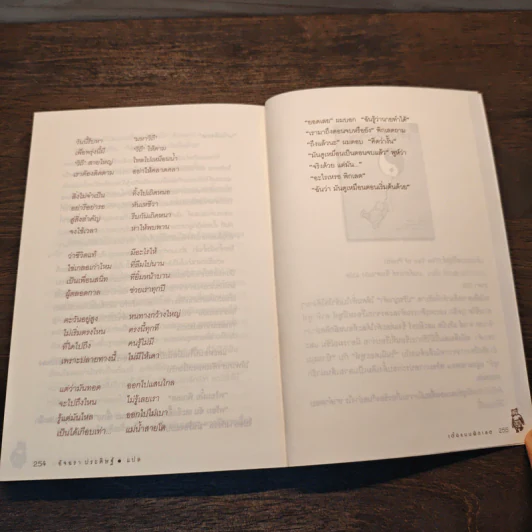 วันนี้สินหา จงหาวิถี
เพื่อพรุ่งนี้มี วิถี ให้ตาม
วิถี สายใหญ่ ไหลไปเหมือนน้ำ
เราต้องติดตาม อย่าให้คลาดคลา
สิ่งไม่จำเป็น ทิ้งไปเถิดหนอ
อย่ารีอย่ารอ
สู่สิ่งสำคัญ รีบกันเถิดหนา
จงใช้เวลา หาให้พบพาน
ว่าชีวิตแท้ มีอะไรให้
ใช่เกลอเก่าไหม ที่ลืมไปนาน
เป็นเพื่อนสนิท ที่ยิ้มหน้าบาน
ผู้ตลอดกาล ช่วยเราทุกปี
ตะวันอยู่สูง หนทางกว้างใหญ่
ไม่เริ่มตรงไหน ตรงนี้ทุกที
ที่ใดไปถึง คนรู้ไม่มี
เพราะปลายทางนี้ ไม่มีให้เดา
แต่ว่ามันทอด ออกไปแสนไกล
จะไปถึงไหน ไม่รู้เลยเรา
รู้แต่มันไหล ออกไปไม่เบา
เป็นได้เกือบเท่า แม่น้ำสายโต...
254 อัจฉรา ประดิษฐ์ แปล
"ยอดเลย" ผมบอก "ฉันรู้ว่านายทำได้"
"เรามาถึงตอนจบหรือยัง" พิกเลตถาม
"ถึงแล้วนะ" ผมตอบ "คิดว่างั้น"
"มันดูเหมือนเป็นตอนจบแล้ว" พูห์ว่า
"จริงด้วย แต่มัน..."
"อะไรเหรอ พิกเลต"
"ฉันว่า มันดูเหมือนตอนเริ่มต้นด้วย"
เต๋อแบบพิกเลต 255